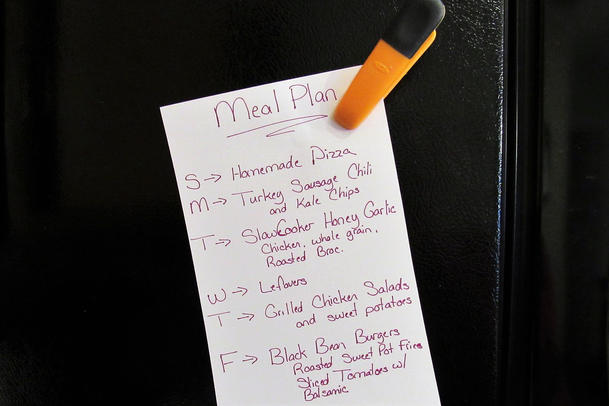 Meal Plan
S → Homemade Pizza
M → Turkey Sausage Chili
and Kale Chips
T → SlowCooker Honey Garlic
Chicken, whole grain,
Roasted Broc.
W → Leftovers
T → Grilled Chicken Salads
and sweet potatoes
F → Black Bean Burgers
Roasted Sweet Pot Fries
Sliced Tomatoes w/
Balsamic